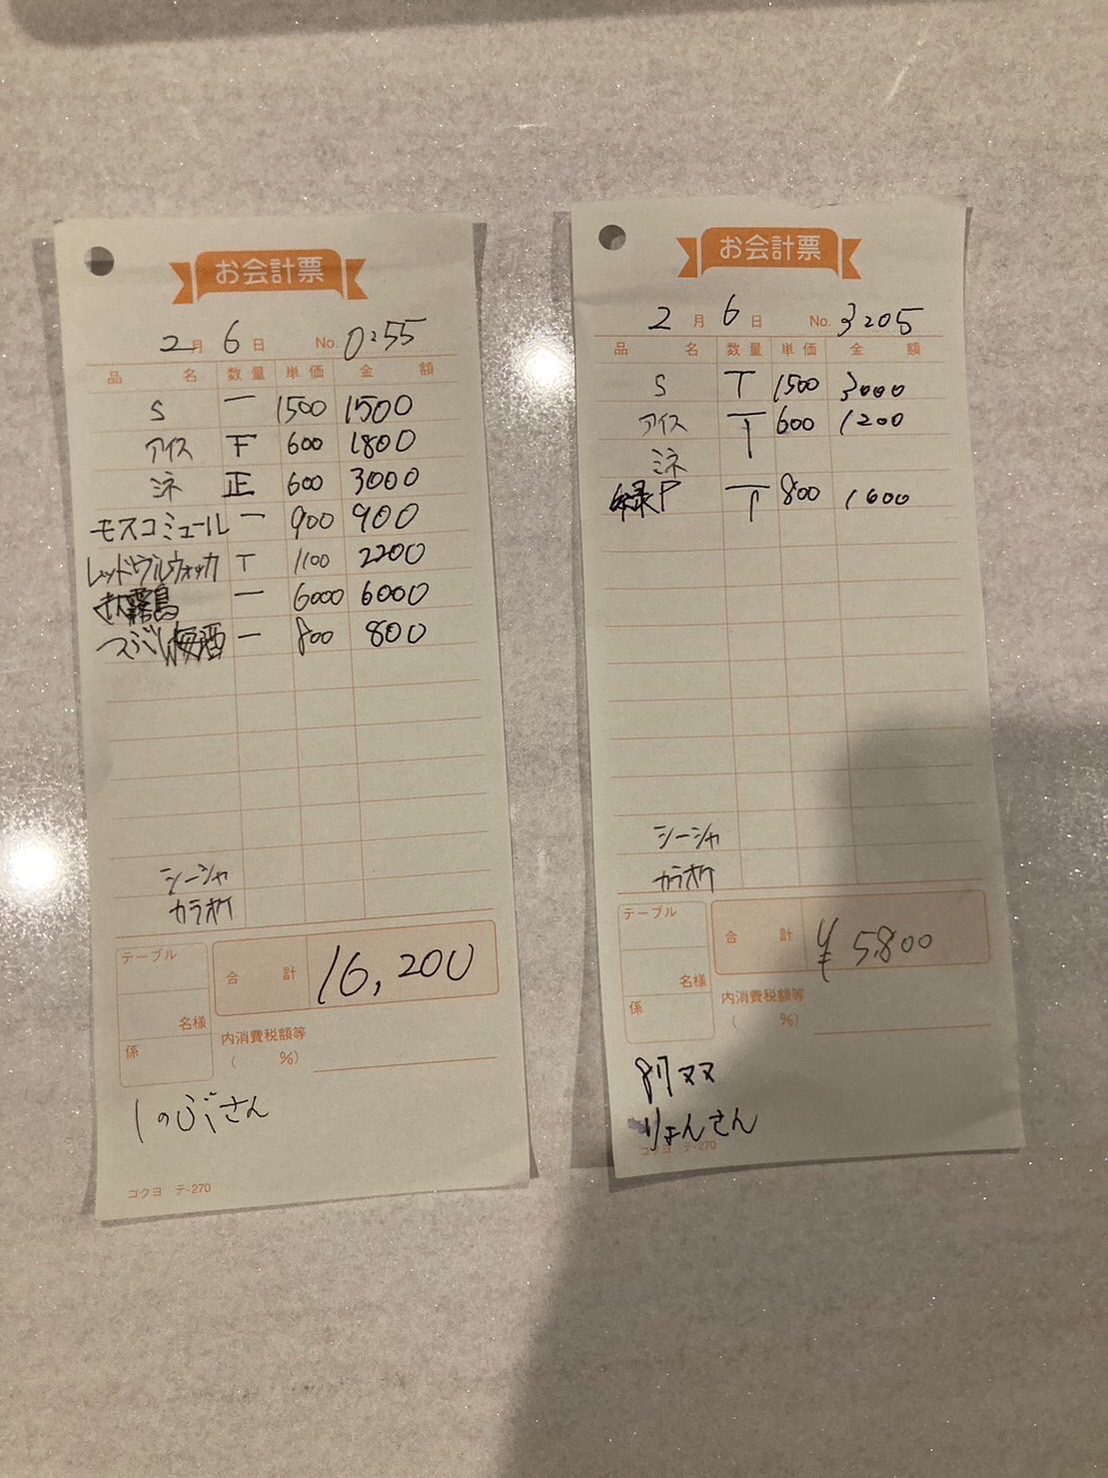 お会計票
2月 6日 No. 0:55
品名 数量 単価 金額
S 一 1500 1500
アイス 下 600 1800
ミネ 正 600 3000
モスコミュール 一 900 900
レッドブルウォッカ T 1100 2200
霧島 一 6000 6000
つぶし梅酒 一 800 800
シーシャ
カラオケ
テーブル
合計 16,200
名様
係
内消費税額等
( %)
しのぶさん
コクヨ テ-270
お会計票
2月 6日 No. 3:05
品名 数量 単価 金額
S T 1500 3000
アイス T 600 1200
ミネ
緑P T 800 1600
シーシャ
カラオケ
テーブル
合計 ¥5,800
名様
係
内消費税額等
( %)
りょんさん
コクヨ テ-270